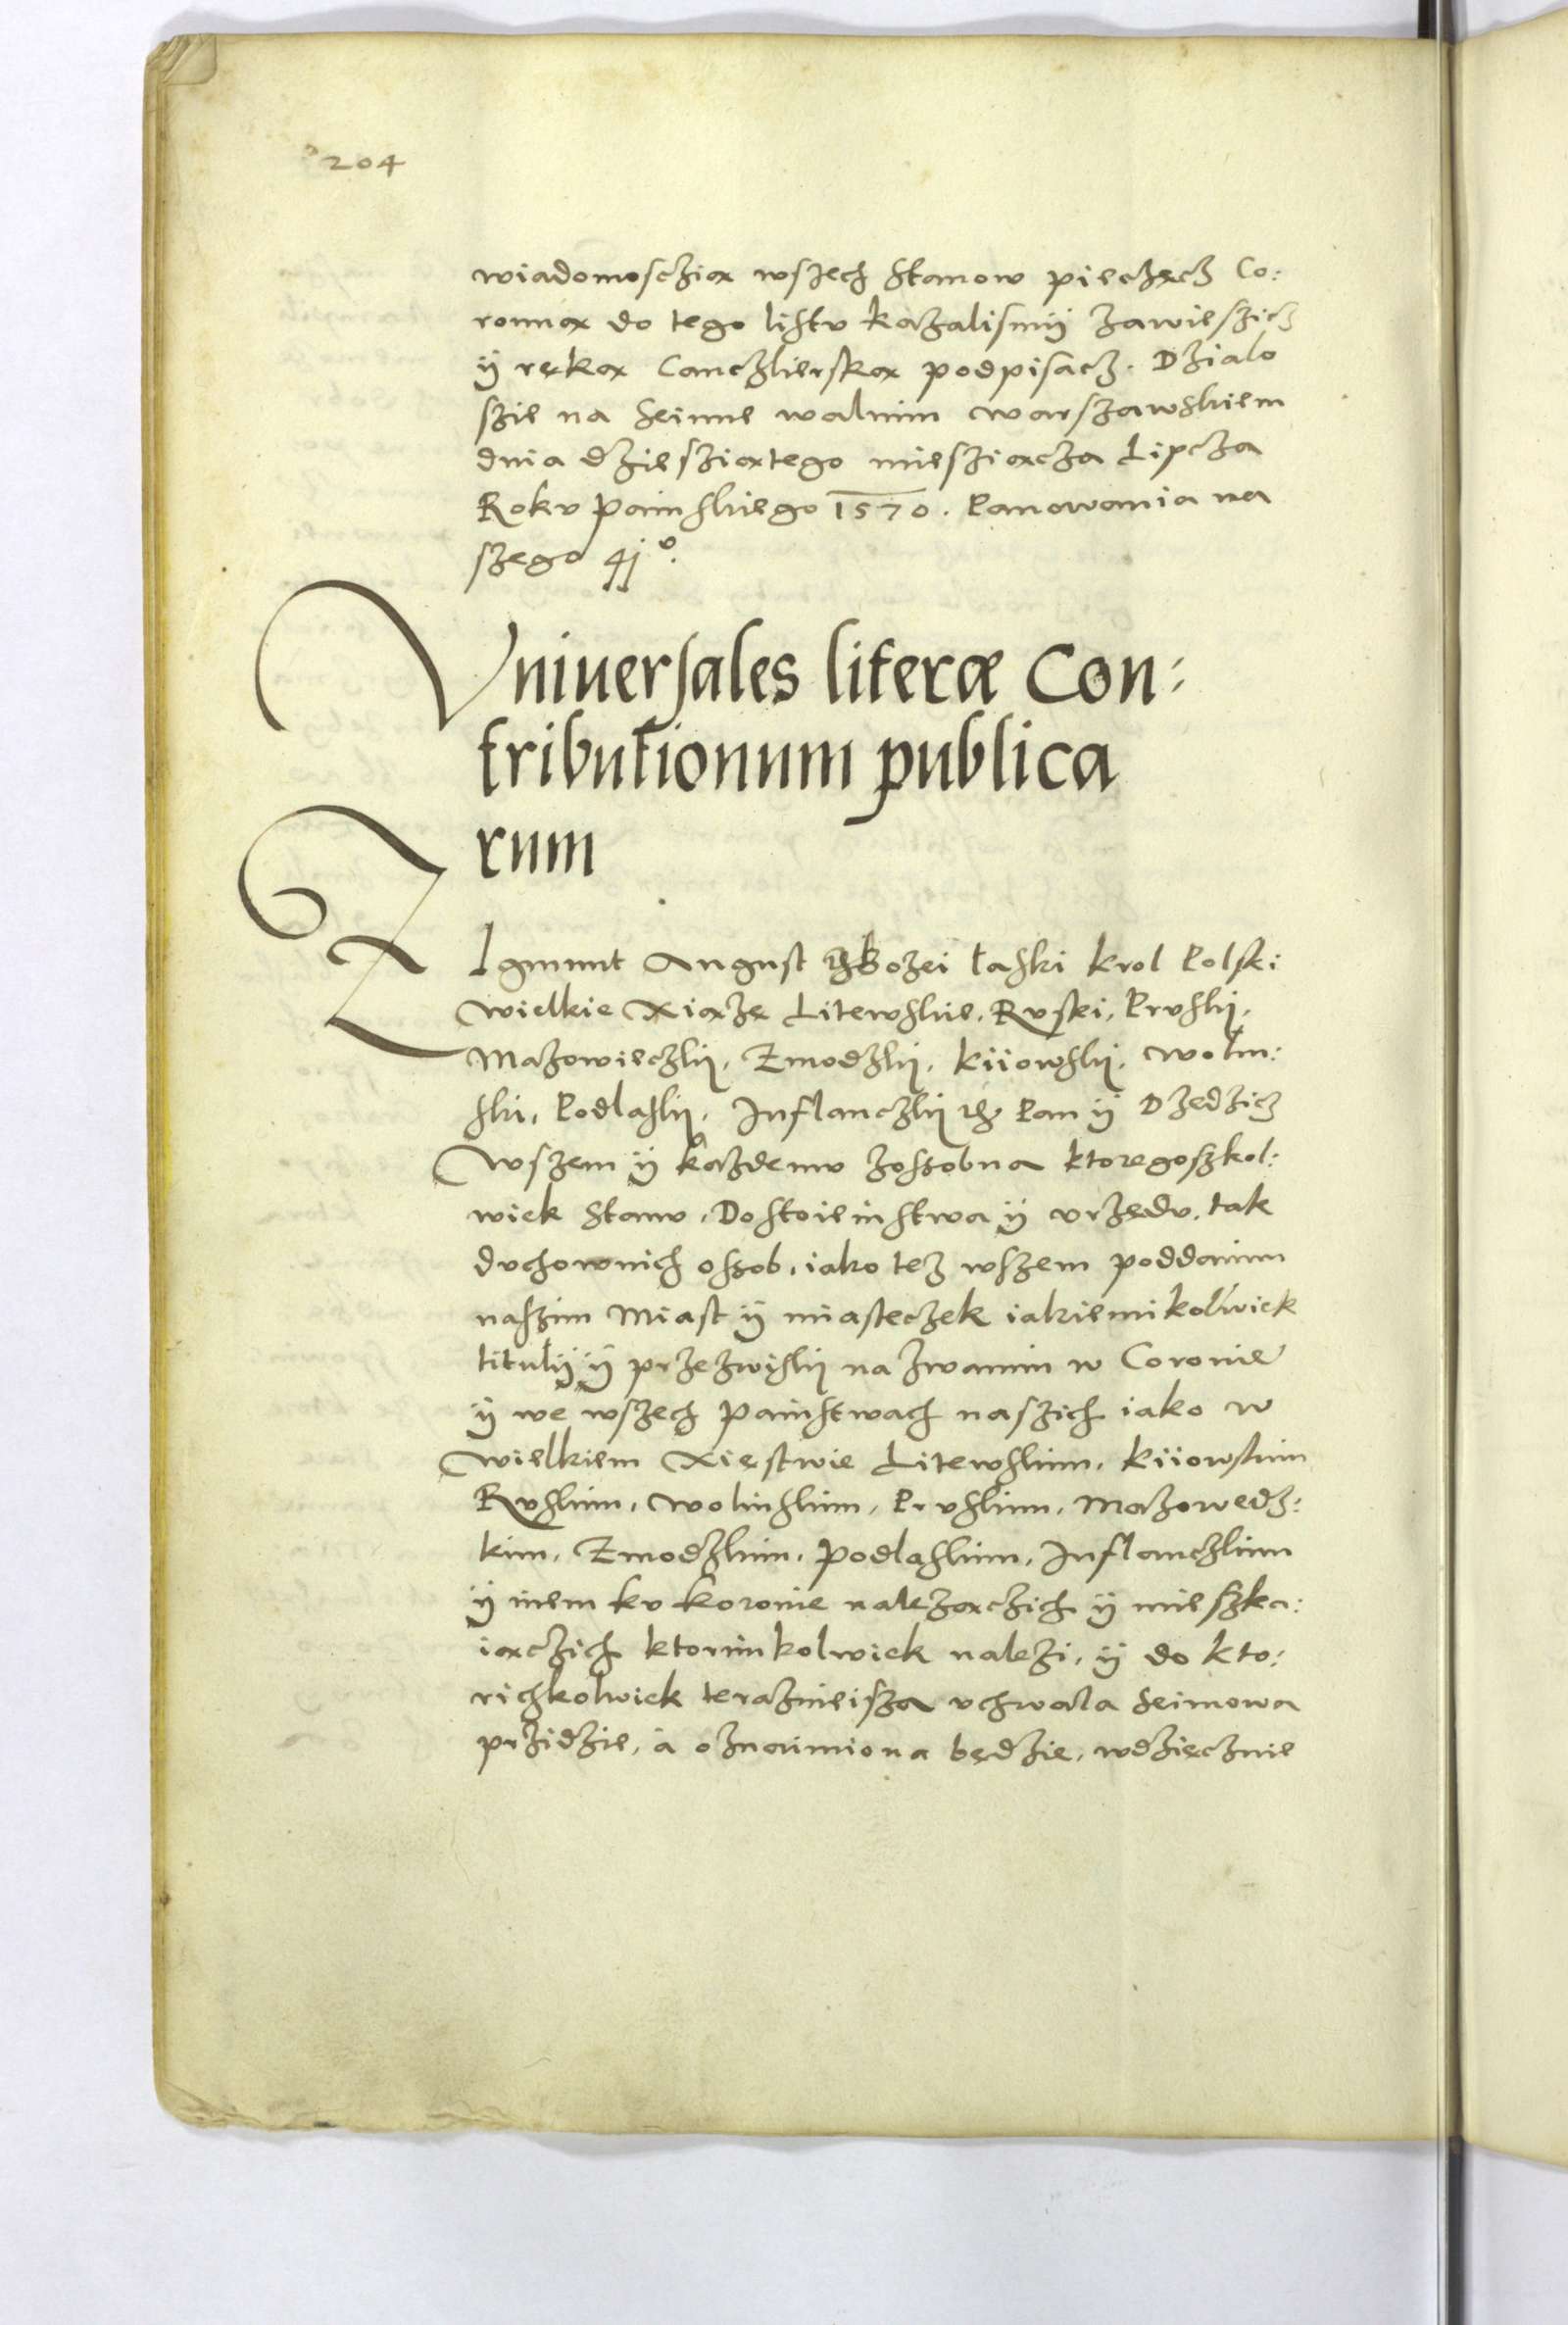 204
wiadomoscziąą wszech stanow pieczęcz Co:
ronną do tego listu kazalismÿ zawieszicz
ÿ ręką Canczlierską podpisacz. Dzialo
szie na Seimie walnim warszawskiem
dnia dziesziątego miesziącza Lipcza
Roku painskiego 1570. Panowania na
szego 41º.
Vniuersales literæ Con:
tributionum publica
rum
ZIgmunt August z Bożei łaski Krol Polski
Wielkie Xiążę Litewskie, Ruski, Pruskÿ,
Mazowieczkÿ, Zmodzkÿ, Kiiowskÿ, wolin:
ski, Podlaskÿ, Inflanczkÿ etc Pan ÿ Dzedzicz
Wszem ÿ każdemu zoszobna ktoregoszkol:
wiek Stanu, Dostoieinstwa ÿ urzędu, tak
duchownich oszob, iako tez wszem poddanim
naszim Miast ÿ miasteczek iakiemikolwiek
titulÿ ÿ przezwiskÿ nazwanim w Coronie
ÿ we wszech painstwach naszich iako w
Wielkiem Xięstwie Litewskim, Kiiowskim
Ruskim, Wolinskim, Pruskim, Mazowedz:
kim, Zmodzkim, Podlaskim, Inflanczkim
ÿ inem ku koronie nalezączich ÿ mieszka:
iączich ktorimkolwiek nalezi, ÿ do kto:
richkolwiek teraznieisza uchwala Seimowa
przidzie, á oznaimiona będzie, wdzięcznie